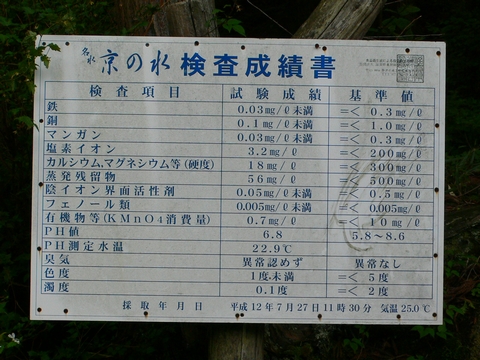 名水 京の水 検査成績書
検査項目 試験成績 基準値
鉄 0.03mg/ℓ未満 =< 0.3mg/ℓ
銅 0.1mg/ℓ未満 =< 1.0mg/ℓ
マンガン 0.03mg/ℓ未満 =< 0.3mg/ℓ
塩素イオン 3.2mg/ℓ =< 200mg/ℓ
カルシウム,マグネシウム等(硬度) 18mg/ℓ =< 300mg/ℓ
蒸発残留物 56mg/ℓ =< 500mg/ℓ
陰イオン界面活性剤 0.05mg/ℓ未満 =< 0.5mg/ℓ
フェノール類 0.005mg/ℓ未満 =< 0.005mg/ℓ
有機物等(KMnO4消費量) 0.7mg/ℓ =< 10mg/ℓ
PH値 6.8 5.8~8.6
PH測定水温 22.9℃
臭気 異常認めず 異常なし
色度 1度未満 =< 5度
濁度 0.1度 =< 2度
採取年月日 平成12年7月27日11時30分 気温25.0℃